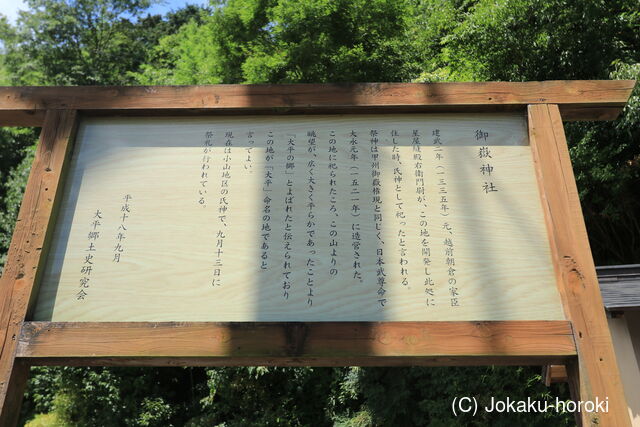 御嶽神社
建武二年(一三三五年)元、越前朝倉の家臣
星屋縫殿右衛門尉が、この地を開発し此処に
住した時、氏神として祀ったと言われる。
祭神は甲州御嶽権現と同じく、日本武尊命で
大永元年(一五二一年)に造営された。
この地に祀られたころ、この山よりの
眺望が、広く大きく平らかであったことより
「大平の郷」とよばれたと伝えられており
この地が「大平」命名の地であると
言ってよい。
現在は小山地区の氏神で、九月十三日に
祭礼が行われている。
平成十八年九月
大平郷土史研究会
(C) Jokaku-horoki